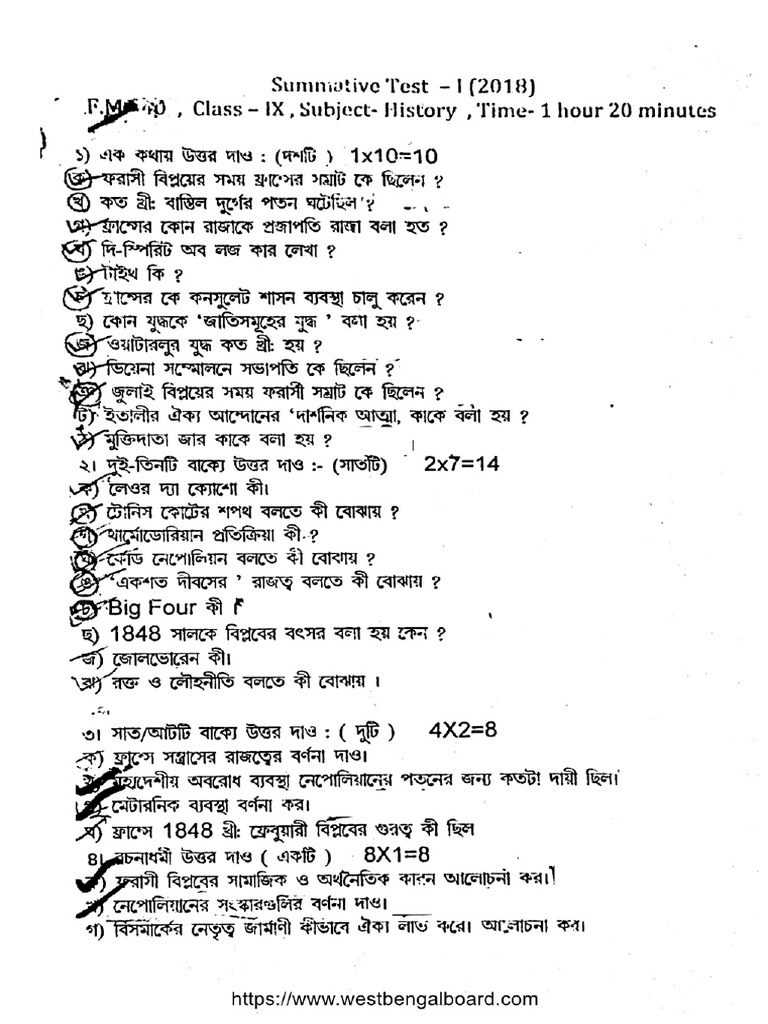 Summative Test – I (2018)
F.M-40 , Class – IX , Subject- History , Time- 1 hour 20 minutes
১) এক কথায় উত্তর দাও : (দশটি ) 1x10=10
ক) ফরাসী বিপ্লয়ের সময় ফ্রান্সের সম্রাট কে ছিলেন ?
খ) কত খ্রী: বাস্তিল দুর্গের পতন ঘটেছিল ?
গ) ফ্রান্সের কোন রাজাকে প্রজাপতি রাজা বলা হত ?
ঘ) দি-স্পিরিট অব লজ কার লেখা ?
ঙ) টাইথ কি ?
চ) ফ্রান্সের কে কনসুলেট শাসন ব্যবস্থা চালু করেন ?
ছ) কোন যুদ্ধকে 'জাতিসমূহের যুদ্ধ ' বলা হয় ?
জ) ওয়াটারলুর যুদ্ধ কত খ্রী: হয় ?
ঝ) ভিয়েনা সম্মোলনে সভাপতি কে ছিলেন ?
ঞ) জুলাই বিপ্লয়ের সময় ফরাসী সম্রাট কে ছিলেন ?
ট) ইতালীর ঐক্য আন্দোনের 'দার্শনিক আত্মা, কাকে বলা হয় ?
ঠ) মুক্তিদাতা জার কাকে বলা হয় ?
২। দুই-তিনটি বাক্যে উত্তর দাও :- (সাতটি) 2x7=14
ক) লেওর দ্যা ক্যোশো কী।
খ) টেনিস কোর্টের শপথ বলতে কী বোঝায় ?
গ) থার্মোডোরিয়ান প্রতিক্রিয়া কী ?
ঘ) কোড নেপোলিয়ন বলতে কী বোঝায় ?
ঙ) 'একশত দীবসের ' রাজত্ব বলতে কী বোঝায় ?
চ) Big Four কী ?
ছ) 1848 সালকে বিপ্লবের বৎসর বলা হয় কেন ?
জ) জোলভেরেন কী।
ঝ) রক্ত ও লৌহনীতি বলতে কী বোঝায় ।
৩। সাত/আটটি বাক্যে উত্তর দাও : ( দুটি ) 4X2=8
ক) ফ্রান্সে সন্ত্রাসের রাজত্বের বর্ণনা দাও।
খ) মহাদেশীয় অবরোধ ব্যবস্থা নেপোলিয়ানের পতনের জন্য কতটা দায়ী ছিল।
গ) মেটারনিক ব্যবস্থা বর্ণনা কর।
ঘ) ফ্রান্সে 1848 খ্রী: ফেব্রুয়ারী বিপ্লবের গুরত্ব কী ছিল
৪। রচনাধর্মী উত্তর দাও ( একটি ) 8X1=8
ক) ফরাসী বিপ্লবের সামাজিক ও অর্থনৈতিক কারন আলোচনা কর।
খ) নেপোলিয়ানের সংস্কারগুলির বর্ণনা দাও।
গ) বিসমার্কের নেতৃত্ব জার্মাণী কীভাবে ঐক্য লাভ করে। আলোচনা কর।
https://www.westbengalboard.com